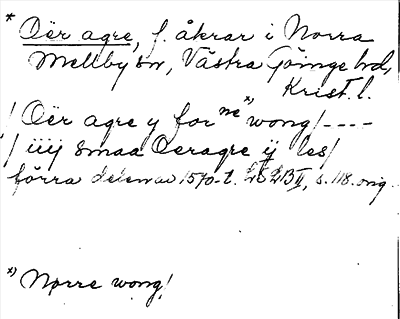 * Oër agre, f. åkrar i Norra
Mellby sn, Västra Göinge hd,
Krist. l.
/ Oër agre y for ne *) wong /----
/ iiij smaa Oeragre ij les/
förra delen av 1570-t. LSDB II, s. 118. orig.
*) Nørre wong!